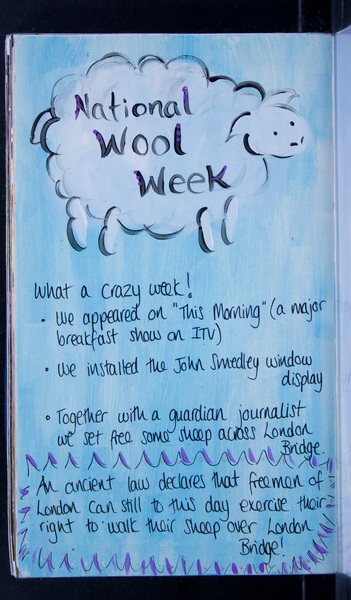 National
Wool
Week
What a crazy week!
• We appeared on "This Morning" (a major
breakfast show on ITV)
• We installed the John Smedley window
display
• Together with a guardian journalist
we set free some sheep across London
Bridge.
An ancient law declares that freemen of
London can still to this day exercise their
right to walk their sheep over London
Bridge!